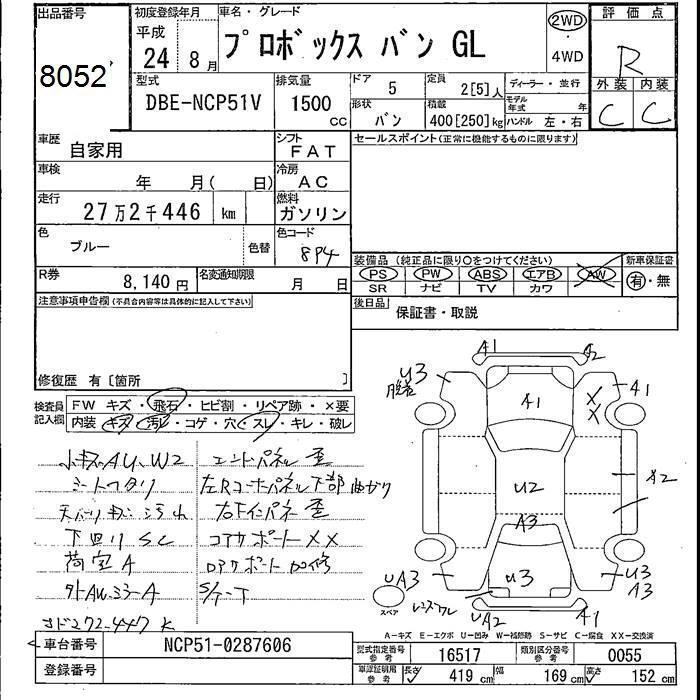 出品番号
8052
初度登録年月
平成
24 8月
車名・グレード
プロボックス バン GL
2WD
・
4WD
評価点
R
外装 内装
C C
型式
DBE-NCP51V
排気量
1500
cc
ドア
5
定員
2[5]人
ディーラー・並行
形状
バン
積載
400[250]kg
モデル年式
年
ハンドル 左・右
車歴
自家用
シフト
FAT
車検
年 月( 日)
冷房
AC
走行
27万2千446 km
燃料
ガソリン
色
ブルー
色替
色コード
8P4
R券
8,140円
名変通知期限
月 日
セールスポイント(正常に機能するものに限ります)
装備品(純正品に限り○をつけてください)
新車保証書
PS PW ABS エアB AW
有・無
SR ナビ TV カワ
後日品
保証書・取説
注意事項申告欄(不具合内容等は具体的に記入して下さい)
修復歴 有〔箇所 〕
検査員
記入欄
FW キズ・飛石・ヒビ割・リペア跡・×要
内装・キズ・汚レ・コゲ・穴・スレ・キレ・破レ
小キズAU、W2
エンドパネル 歪
シートヘタリ
左Rコーナーパネル下部曲がり
天バリキズ汚れ
右下インパネ 歪
下回りSC
コアサポートXX
荷室A
ロアサポート加修
S/T-T
A1 A2
U3
A1
A1
X
X
A2
U2
A3
UA3
U3
U3
A3
スペア
UA2
A1
A-キズ E-エクボ U-凹み W-補修跡 S-サビ C-腐食 XX-交換済
車台番号
NCP51-0287606
登録番号
型式指定番号
参考
16517
類別区分番号
参考
0055
車庫証明用
参考
長さ
419 cm
幅
169 cm
高さ
152 cm